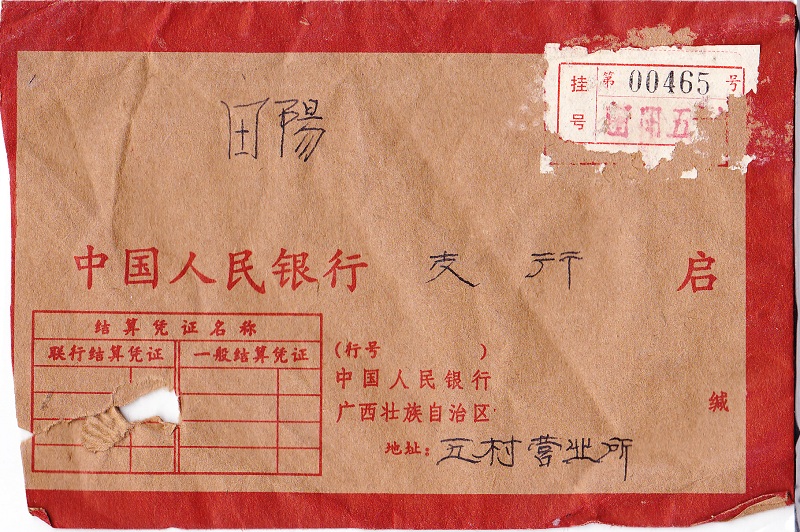 挂号
第 00465 号
田阳五
田陽
中国人民银行 支行 启
结算凭证名称
联行结算凭证 一般结算凭证
(行号 )
中国人民银行
广西壮族自治区
缄
地址：五村营业所